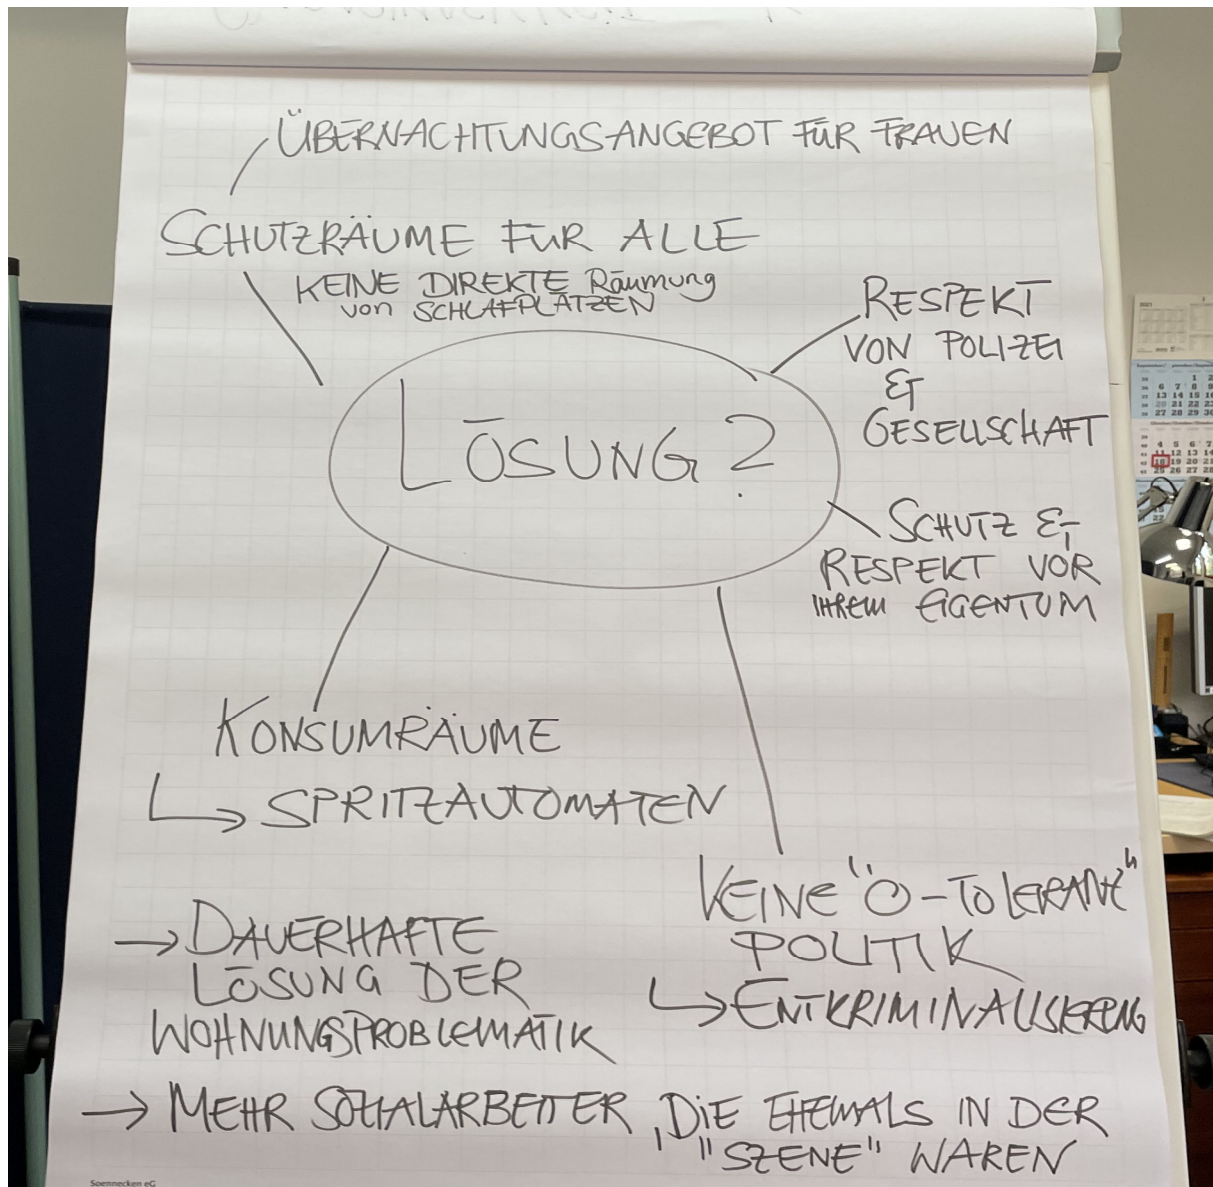 ÜBERNACHTUNGSANGEBOT FÜR FRAUEN
SCHUTZRÄUME FÜR ALLE
KEINE DIREKTE Räumung
von SCHLAFPLÄTZEN
RESPEKT
VON POLIZEI
&
GESELLSCHAFT
LÖSUNG?
SCHUTZ &
RESPEKT VOR
IHREM EIGENTUM
KONSUMRÄUME
↳ SPRITZAUTOMATEN
KEINE "0-TOLERANZ"
POLITIK
↳ ENTKRIMINALISIERUNG
→ DAUERHAFTE
LÖSUNG DER
WOHNUNGSPROBLEMATIK
→ MEHR SOZIALARBEITER, DIE EHEMALS IN DER
"SZENE" WAREN
Soennecken eG